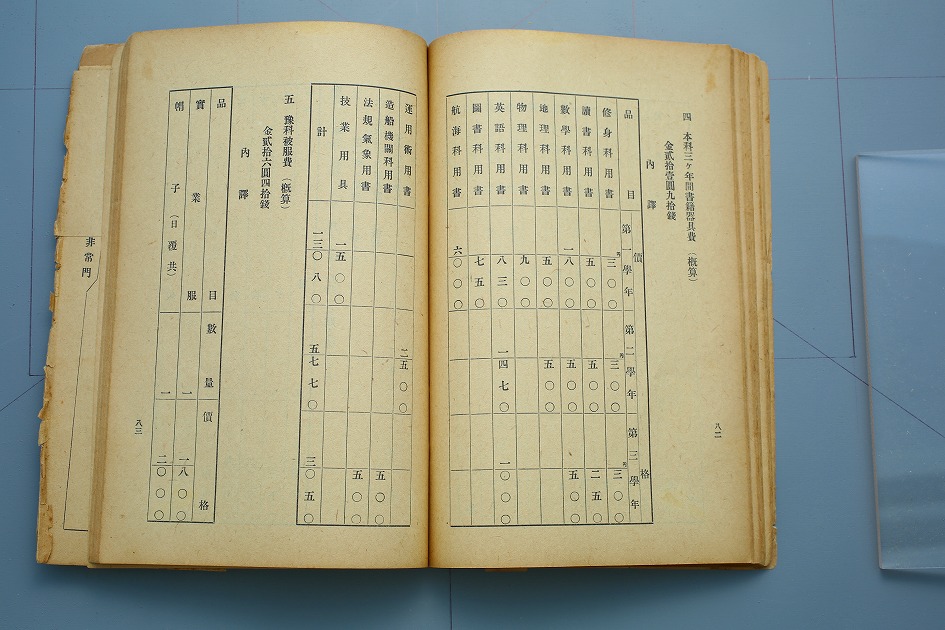 四　本科三ヶ年間書籍器具費（概算）
金貳拾壹圓九拾錢
內譯
品目　價格
第一學年　第二學年　第三學年
修身科用書　三〇〇　三〇〇　三〇〇
讀書科用書　五〇〇　五〇〇　二五〇
數學科用書　一八〇〇　五〇〇　五〇〇
地理科用書　五〇〇　五〇〇
物理科用書　九〇〇
英語科用書　八三〇　一四七〇　一〇〇〇
圖書科用書　七五〇
航海科用書　六〇〇〇
八二
運用術用書　二五〇〇
造船機關科用書　五〇〇
法規氣象用書　五〇〇
技業用具　一五〇〇
計　一三〇八〇　五七七〇　三〇五〇
五　豫科被服費（概算）
金貳拾六圓四拾錢
內譯
品目　數量　價格
實業服　一　一八〇〇
帽子（日覆共）　一　二〇〇〇
八三
非常門